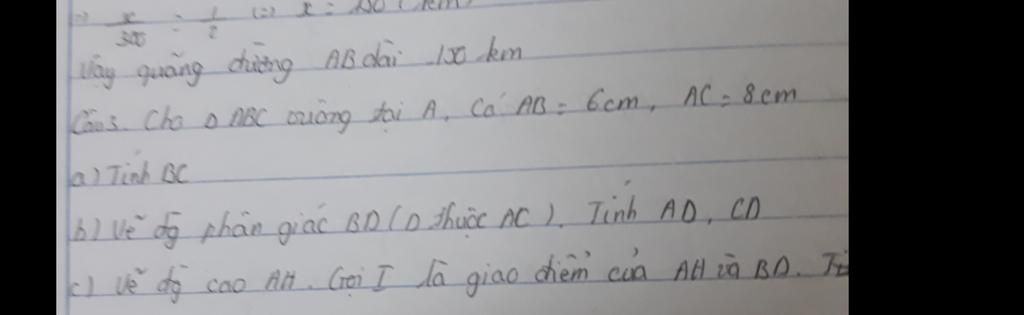 x/300 = 1/2 (=) x = 150 (km)
Vậy quãng đường AB dài 150 km
Câu 3. Cho Δ ABC vuông tại A. Có AB = 6cm, AC = 8cm
a) Tính BC
b) Vẽ đg phân giác BD (D thuộc AC). Tính AD, CD
c) Vẽ đg cao AH. Gọi I là giao điểm của AH và BD.